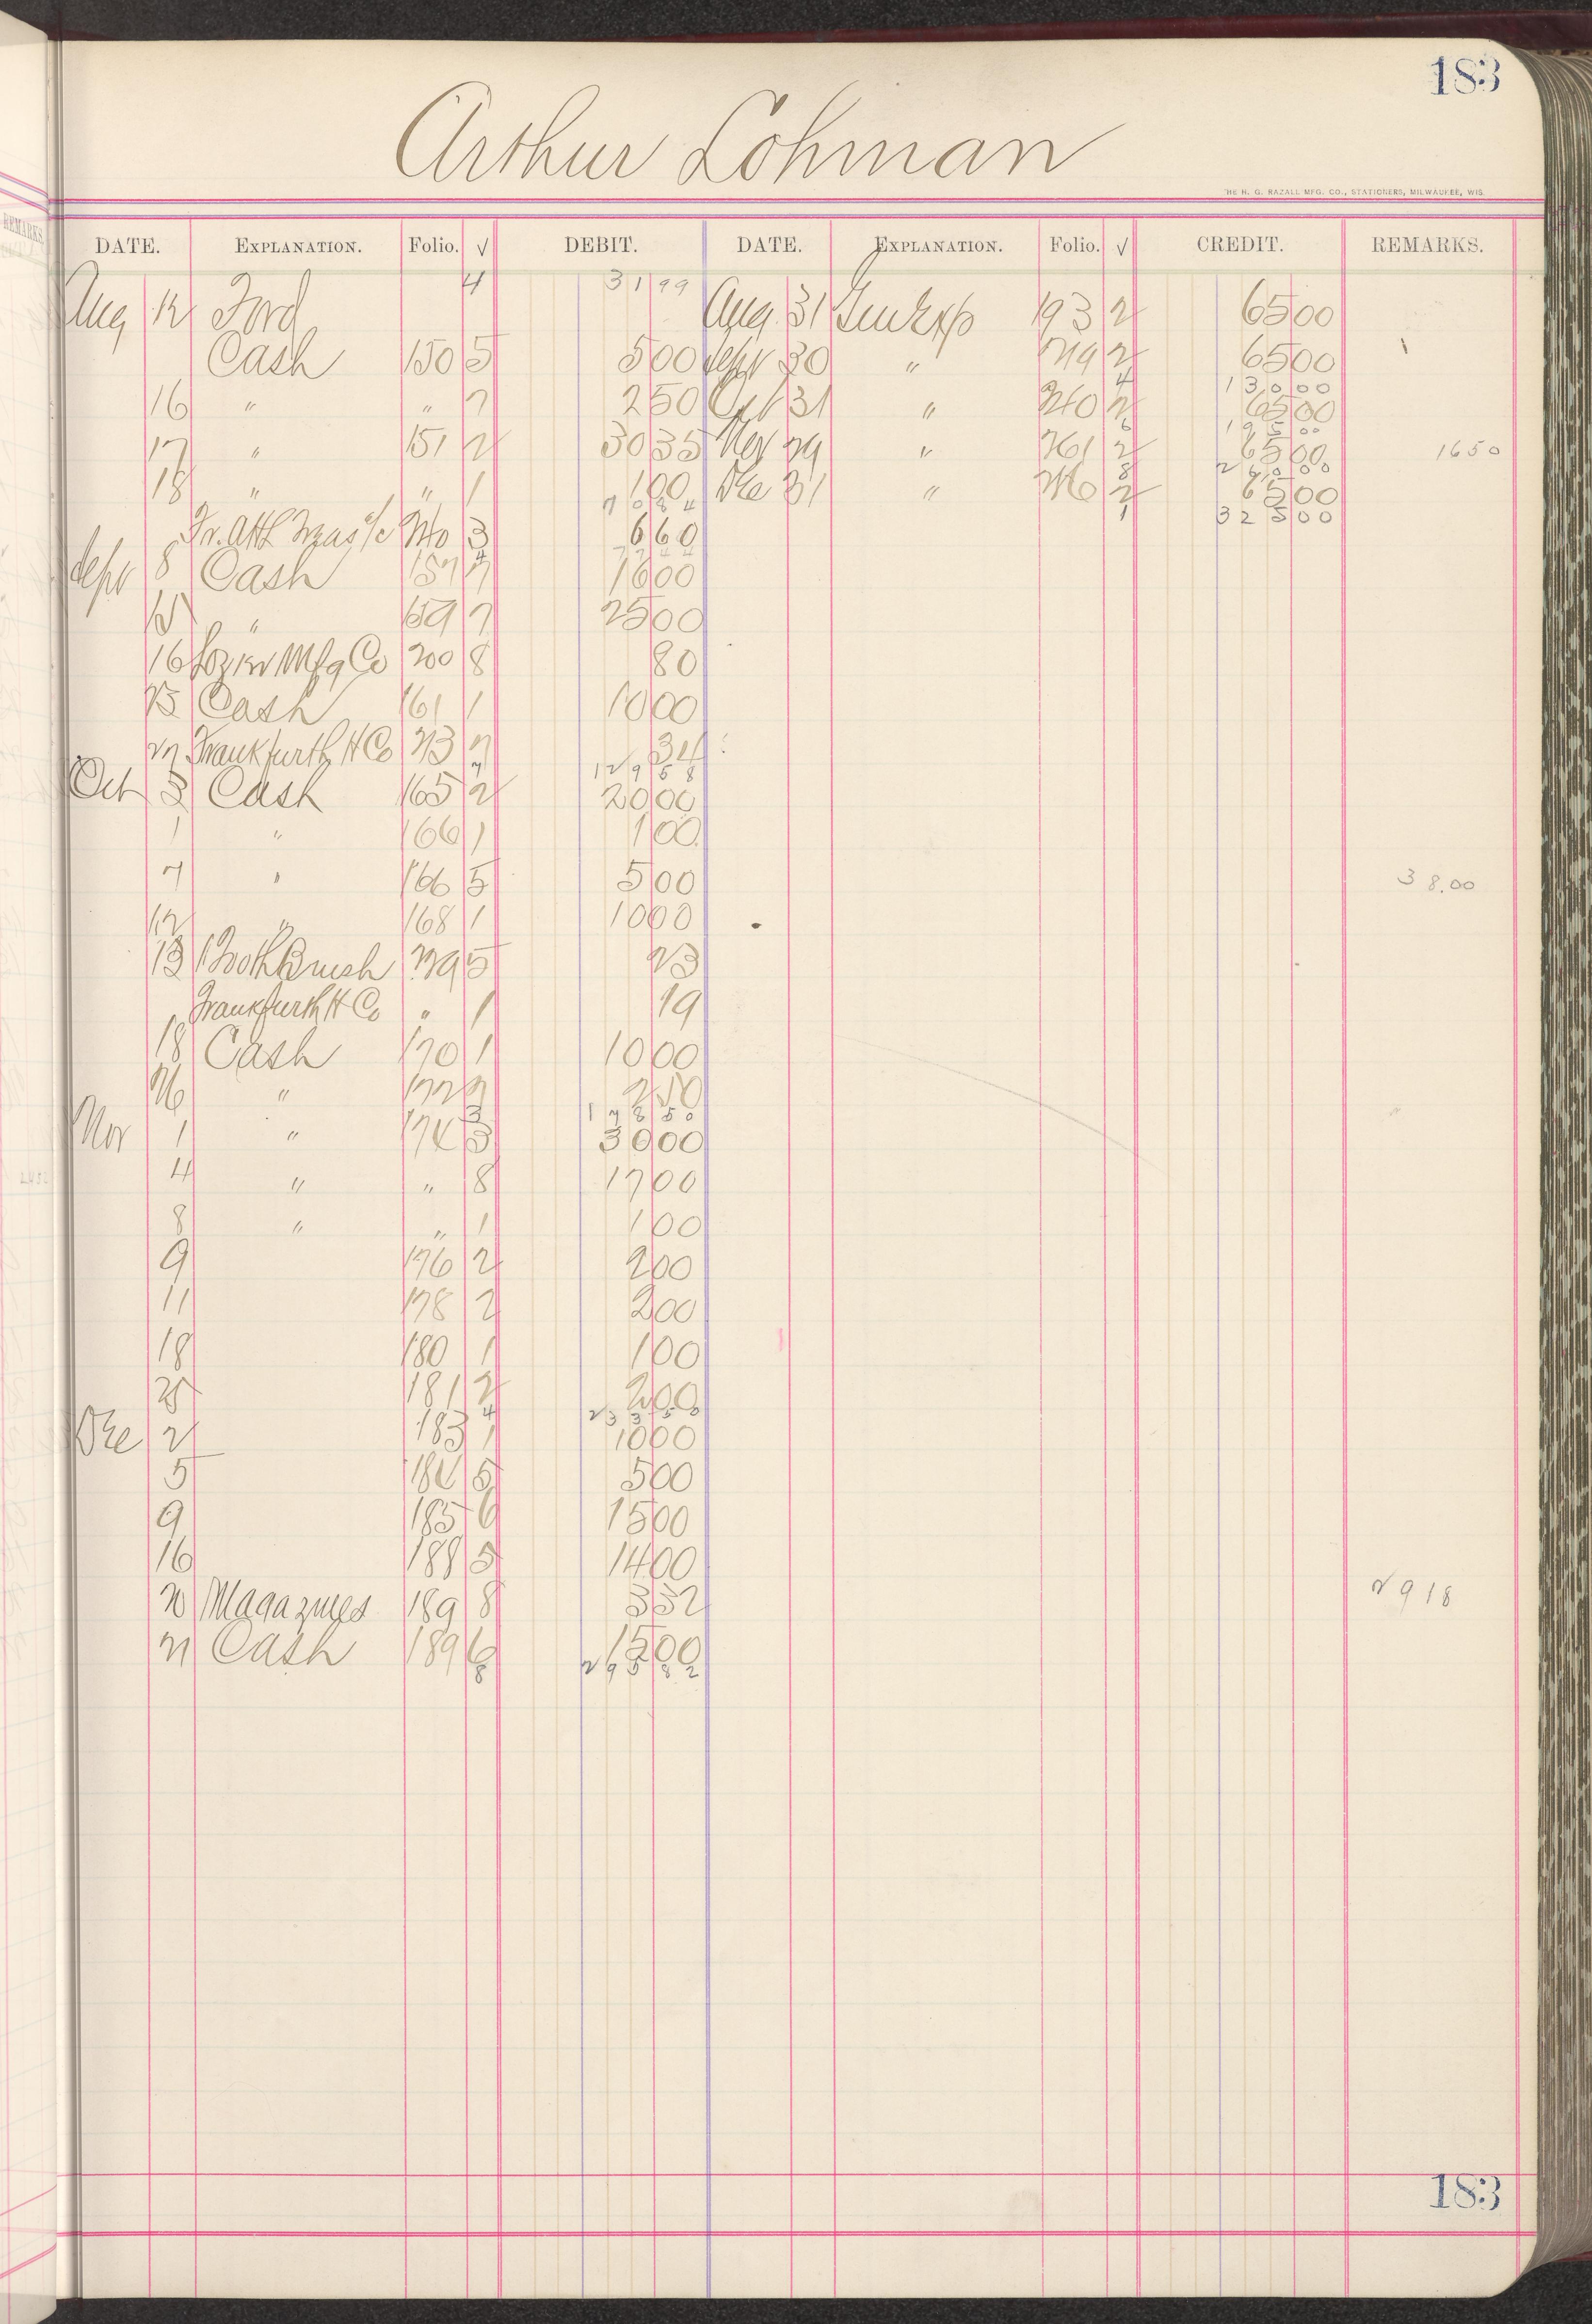 183
Arthur Lohman
THE H. G. RAZALL MFG. CO., STATIONERS, MILWAUKEE, WIS.
DATE. EXPLANATION. Folio. √ DEBIT. DATE. EXPLANATION. Folio. √ CREDIT. REMARKS.
4 31 99
Aug 12 Ford Aug. 31 Gen Exp 193 2 65 00
Cash 150 5 5 00 Sept 30 " 219 2 65 00
4 130 00
16 " " 7 2 50 Oct 31 " 240 2 65 00
6 195 00
17 " 151 2 30 35 Nov 29 " 261 2 65 00 1650
8 260 00
18 " " 1 1 00 Dec 31 " 2 65 00
70 84 1 325 00
3 6 60
77 44
Sept 8 Cash 157 7 16 00
15 " 159 7 25 00
16 Lozier Mfg Co 200 8 80
25 Cash 161 1 10 00
27 Frankfurth H Co 213 7 34
129 58
Oct 3 Cash 165 2 20 00
1 " 166 1 1 00
7 " 166 5 5 00 38.00
12 " 168 1 10 00
13 1 Tooth Brush 229 5 23
Frankfurth H Co " 1 19
18 Cash 170 1 10 00
26 " 172 7 2 50
3 178 50
Nov 1 " 174 3 30 00
4 " " 8 17 00
8 " " 1 1 00
9 176 2 2 00
11 178 2 2 00
18 180 1 1 00
25 181 2 2 00
4 233 50
Dec 2 183 1 10 00
5 184 5 5 00
9 185 6 15 00
16 188 5 14 00
20 Magazines 189 8 3 32 2918
21 Cash 189 6 15 00
8 295 82
183